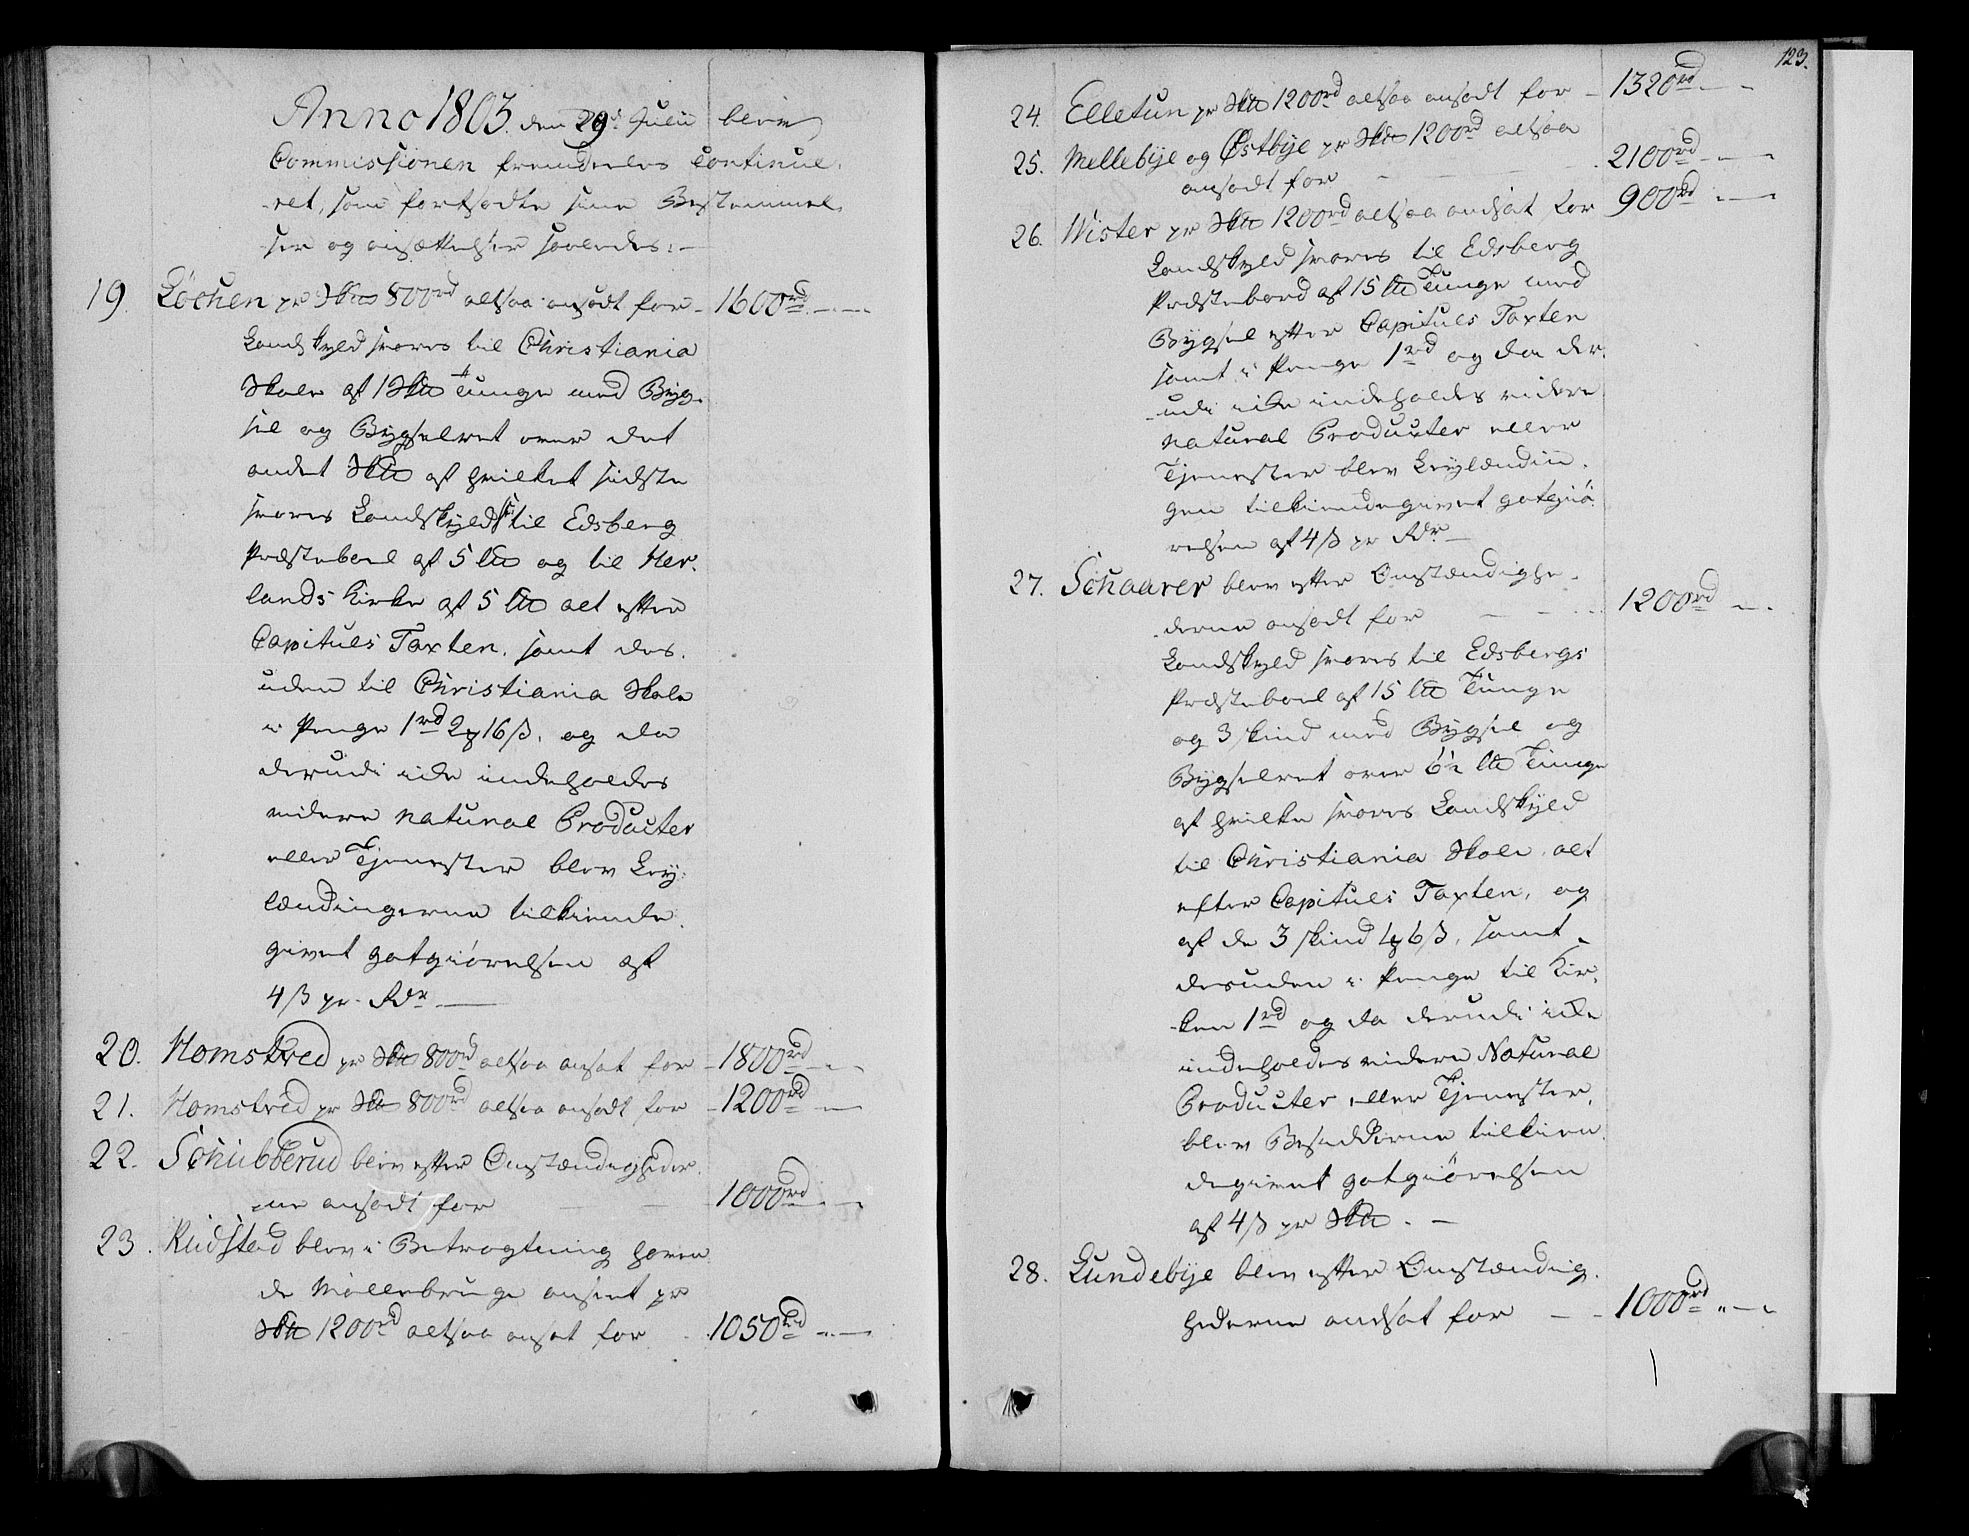 Anno 1803. den 29de Julii blev
Commissionen fremdeeles Continue-
ret, som fortsadte sine Bestemmel-
ser og ansættelser saaledes:
19. Løchen pr Sk℔ 800rd altsaa ansadt for 1600rd
Landskyld svares til Christiania
Skole af 1 Sk℔ Tunge med Byg-
sel og Bygselret over det
andet Sk℔ af hvilket sidste
svares Landskyld til Edsberg
Præsteboel af 5 L℔ og til Her-
lands Kirke af 5 L℔ alt efter
Capituls Taxten, samt des-
uden til Christiania Skole
i Penge 1rd 2 16ß, og da
derudi icke indeholdes
videre natural Producter
eller Tjenester blev Ley-
lændingerne tilkiende-
givet gotgiørelsen af
4ß pr. Rdr
20. Homstved pr Sk℔ 800rd altsaa ansat for 1800rd
21. Homstved pr Sk℔ 800rd altsaa ansadt for 1200rd
22. Schibberud blev efter Omstændigheder-
ne ansadt for 1000rd
23. Rudstad blev i Betragtning haven-
de Møllebruge anseet pr
Sk℔ 1200rd altsaa ansat for 1050rd
123.
24. Elletun pr Sk℔ 1200rd altsaa ansadt for 1320rd
25. Mellebye og Østbye pr Sk℔ 1200rd altsaa
ansadt for 2100rd
26. Wister pr Sk℔ 1200rd altsaa andsat for 900rd
Landskyld svares til Edsberg
Præstebord af 15 L℔ Tunge med
Bygsel efter Capituls Taxten
samt i Penge 1rd og da der-
udi icke indeholdes videre
natural Producter eller
Tjenester blev Leylændin-
gen tilkiendegivet gotgiø-
relsen af 4ß pr Rdr
27. Schaarer blev efter Omstændighe-
derne ansadt for 1200rd
Landskyld svares til Edsbergs
Præsteboel af 15 L℔ Tunge
og 3 skind med Bygsel og
Bygselret over 6½ L℔ Tunge
af hvilke svares Landskyld
til Christiania Skole alt
efter Capituls Taxten, og
af de 3 skind 1 6ß, samt
desuden i Penge til Kir-
ken 1rd og da derudi icke
indeholdes videre Natural
Producter eller Tjenester,
blev Besidderne tilkien-
degivet gotgiørelsen
af 4ß pr Sk℔.
28. Lundebye blev efter Omstændig-
hederne andsat for 1000rd